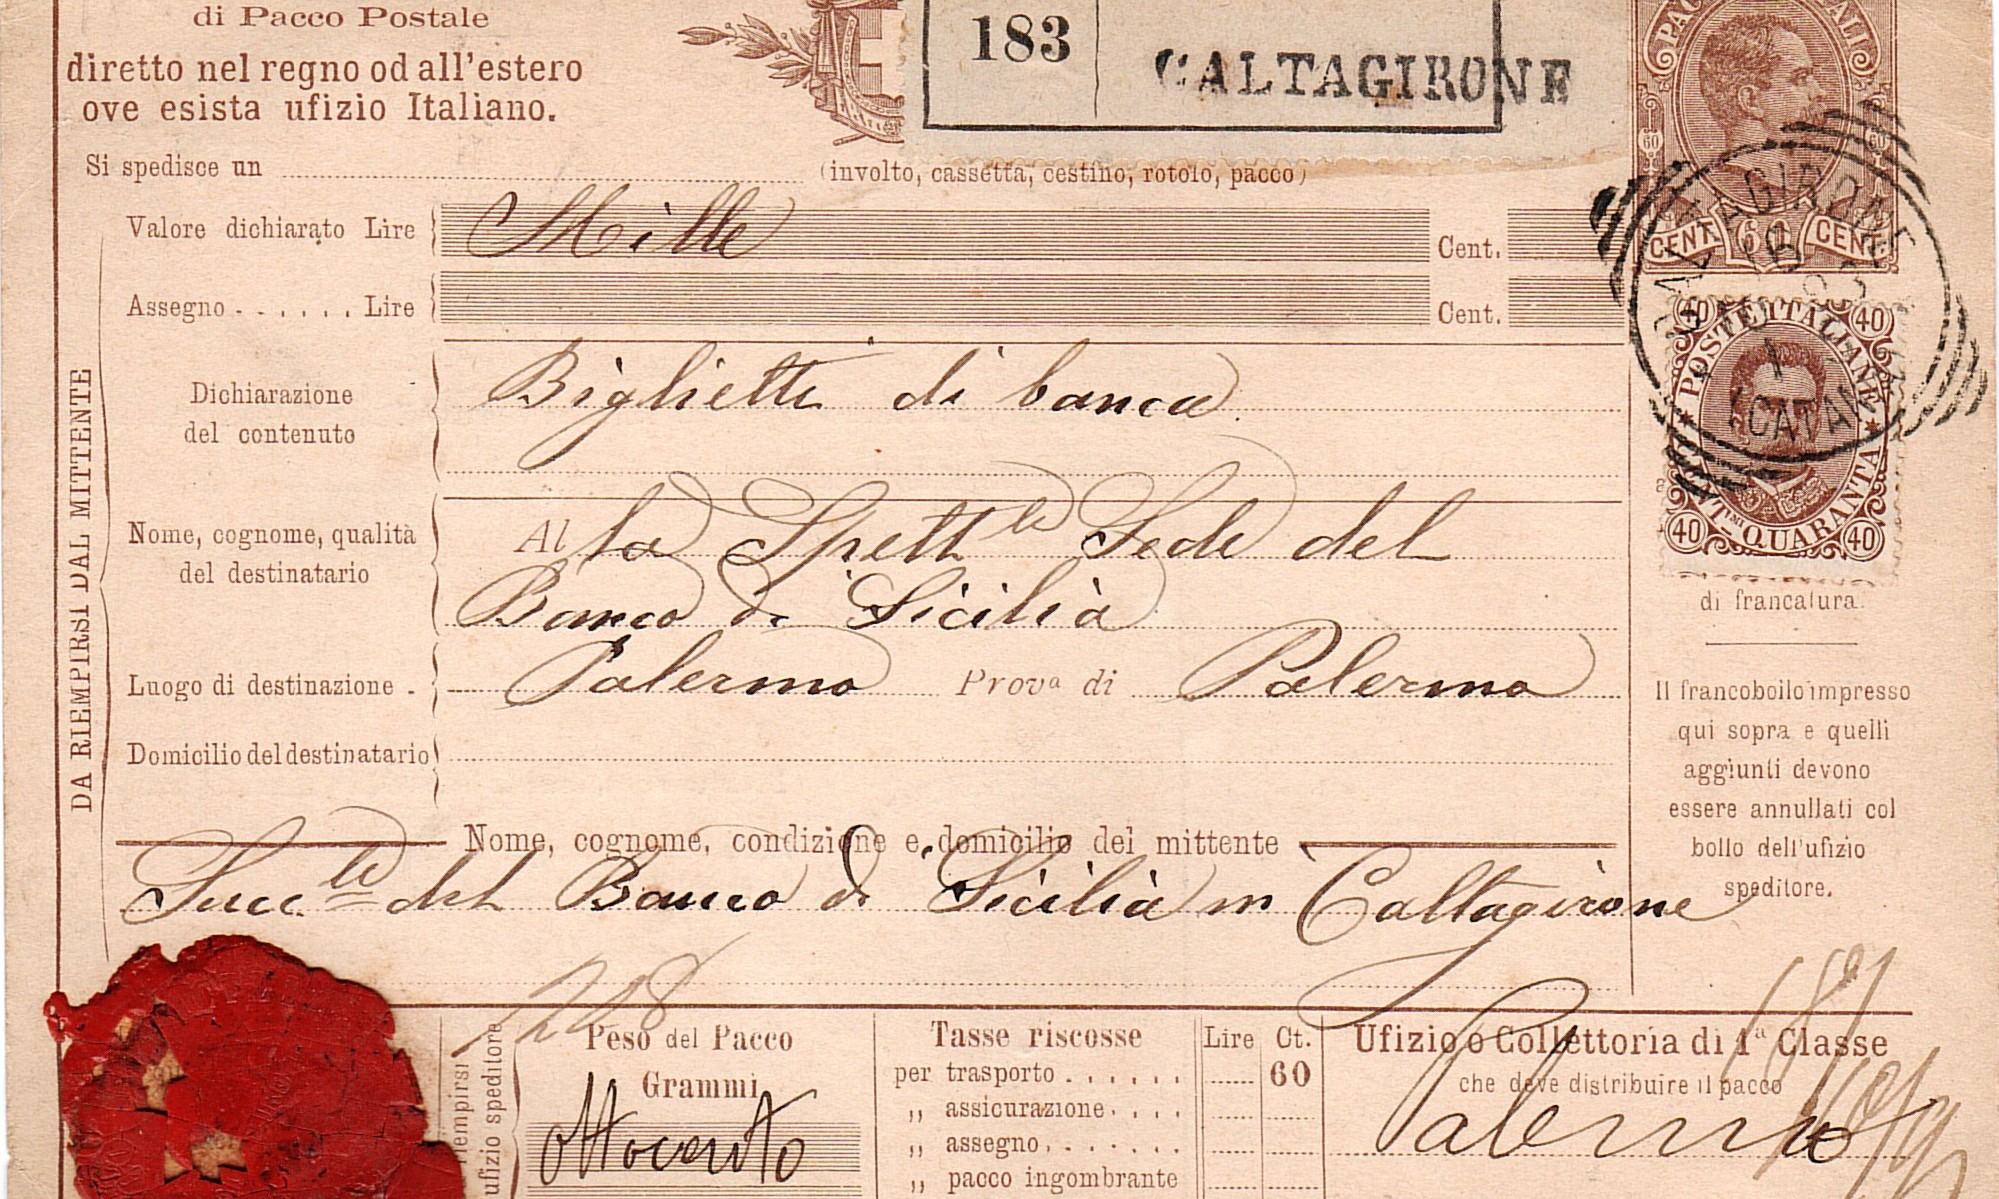 di Pacco Postale
diretto nel regno od all'estero
ove esista ufizio Italiano.
183
CALTAGIRONE
PAC ALI
60
60
CENT. 60 CENT.
Si spedisce un (involto, cassetta, cestino, rotolo, pacco)
Valore dichiarato Lire Mille Cent.
Assegno . . . . . . Lire Cent.
CALTAGIRONE
CATANIA
40 40
POSTE ITALIANE
QUARANTA
40 40
DA RIEMPIRSI DAL MITTENTE
Dichiarazione
del contenuto
Biglietti di banca
Nome, cognome, qualità
del destinatario
Al la Spettle Sede del
Banco di Sicilia
Luogo di destinazione . Palermo Prova di Palermo
Domicilio del destinatario
di francatura.
Il francobollo impresso
qui sopra e quelli
aggiunti devono
essere annullati col
bollo dell'ufizio
speditore.
Nome, cognome, condizione e domicilio del mittente
Succle del Banco di Sicilia in Caltagirone
208
riempirsi
ufizio speditore
Peso del Pacco
Grammi
ottocento
Tasse riscosse Lire Ct.
per trasporto . . . . . . 60
„ assicurazione . . . .
„ assegno . . . . . . .
„ pacco ingombrante
Ufizio o Collettoria di 1a Classe
che deve distribuire il pacco
Palermo